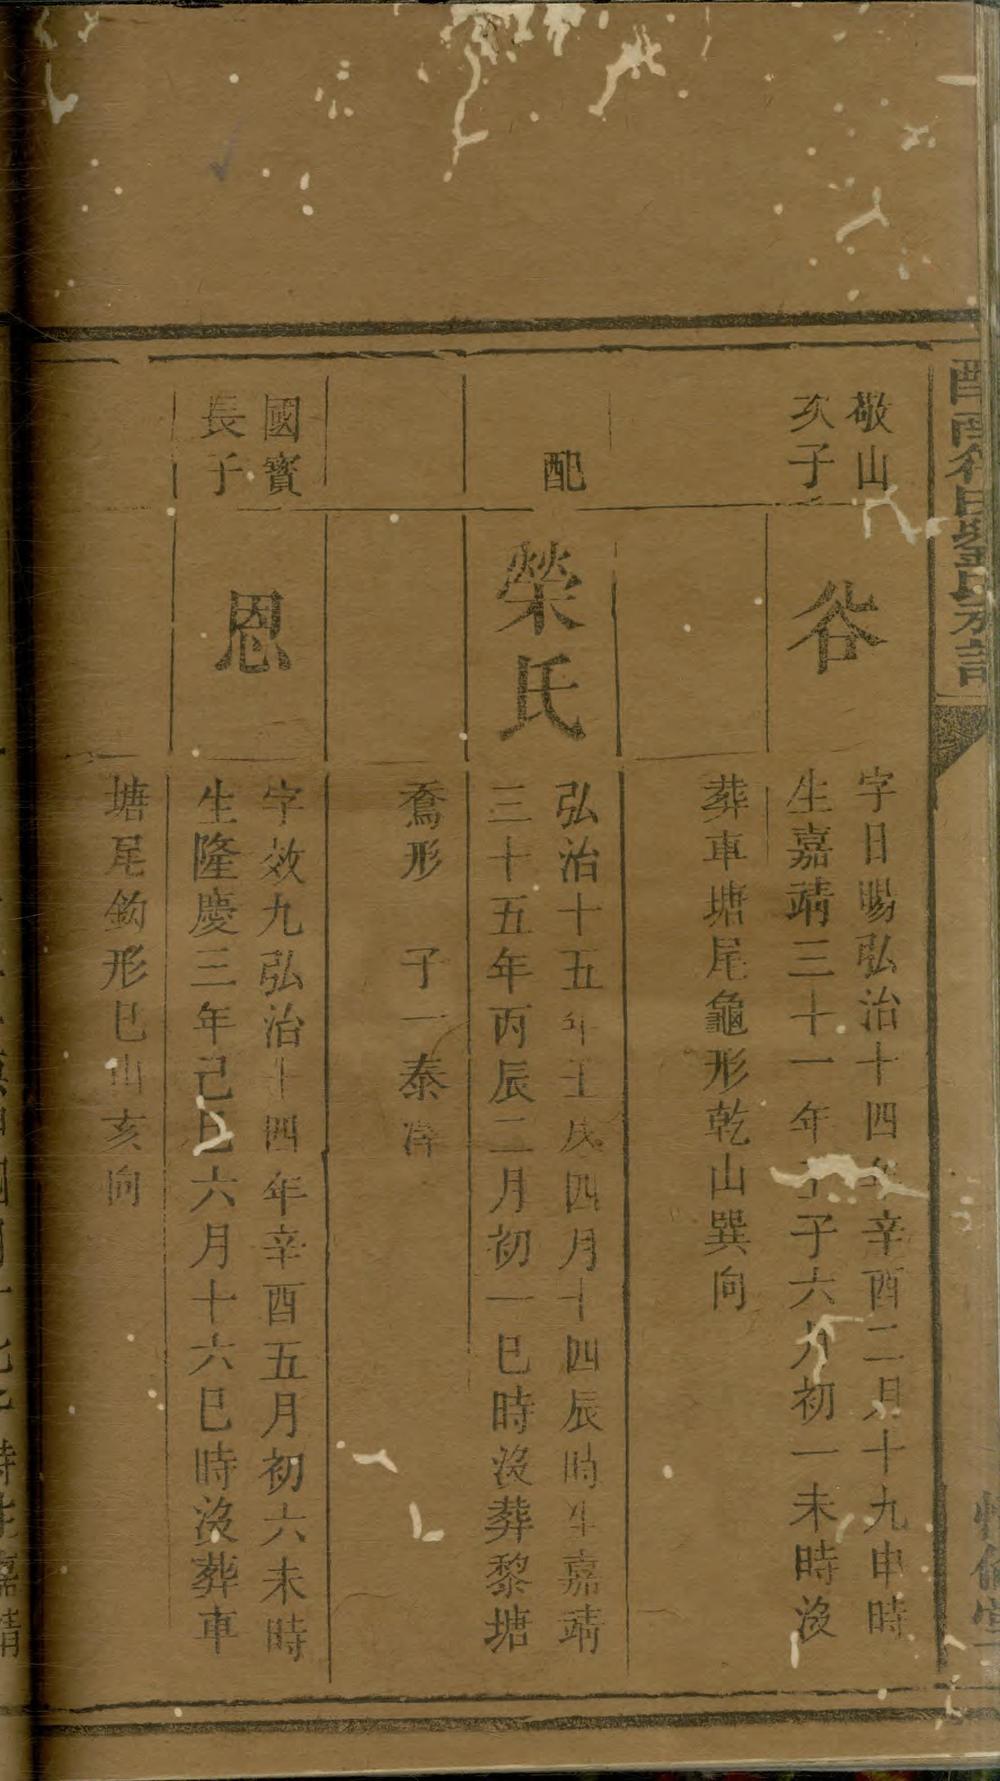 敬山
次子
谷
字日暘弘治十四年辛酉二月十九申時
生嘉靖三十一年壬子六月初一未時沒
葬車塘尾龜形乾山巽向
配
榮氏
弘治十五年壬戌四月十四辰時生嘉靖
三十五年丙辰二月初一巳時沒葬黎塘
形 子一泰
國寳
長子
恩
字效九弘治十四年辛酉五月初六未時
生隆慶三年己巳六月十六巳時沒葬車
塘尾鈎形巳山亥向